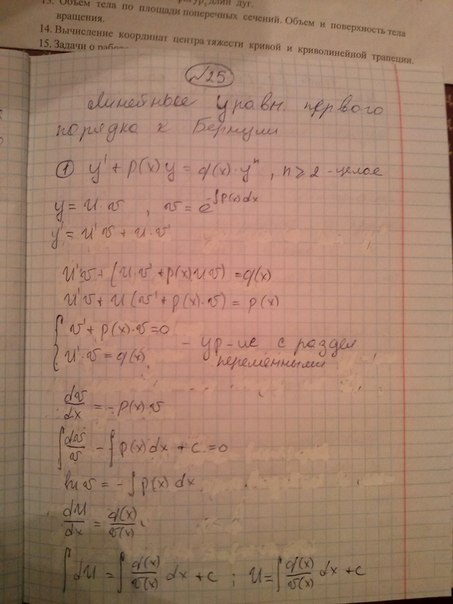 15. Объем тела по площади поперечных сечений. Объем и поверхность тела
вращения.
14. Вычисление координат центра тяжести кривой и криволинейной трапеции.
15. Задачи о
№25
Линейные уравн. первого
порядка к Бернули
① y' + p(x)y = q(x)·yⁿ, n ≥ 2 - целое
y = u·v, v = e^(-∫p(x)dx)
y' = u'v + u·v'
u'v + (u·v' + p(x)uv) = q(x)
u'v + u(v' + p(x)·v) = p(x)
{ v' + p(x)·v = 0
{ u'·v = q(x) - ур-ие с раздел
переменными
dv/dx = -p(x)v
∫dv/v - ∫p(x)dx + c = 0
ln v = -∫p(x)dx
du/dx = q(x)/v(x)
∫du = ∫q(x)/v(x) dx + c ; u = ∫q(x)/v(x) dx + c